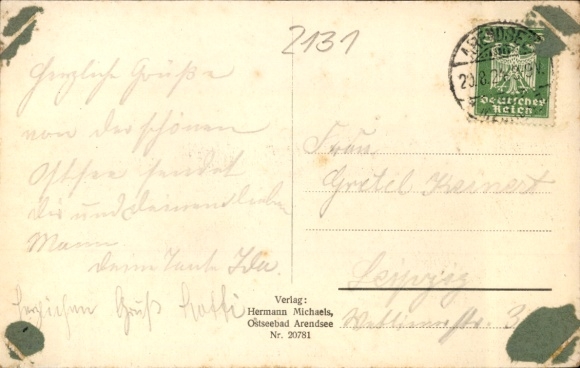 2131
Herzliche Grüße
von der schönen
Ostsee sendet
dir und deinem lieben
Mann
deine Tante Ida.
Herzlichen Gruß
Frau
Gretel
Leipzig
3
ARENDSEE
20.8.2
Deutsches
Reich
Verlag:
Hermann Michaels,
Ostseebad Arendsee
Nr. 20781